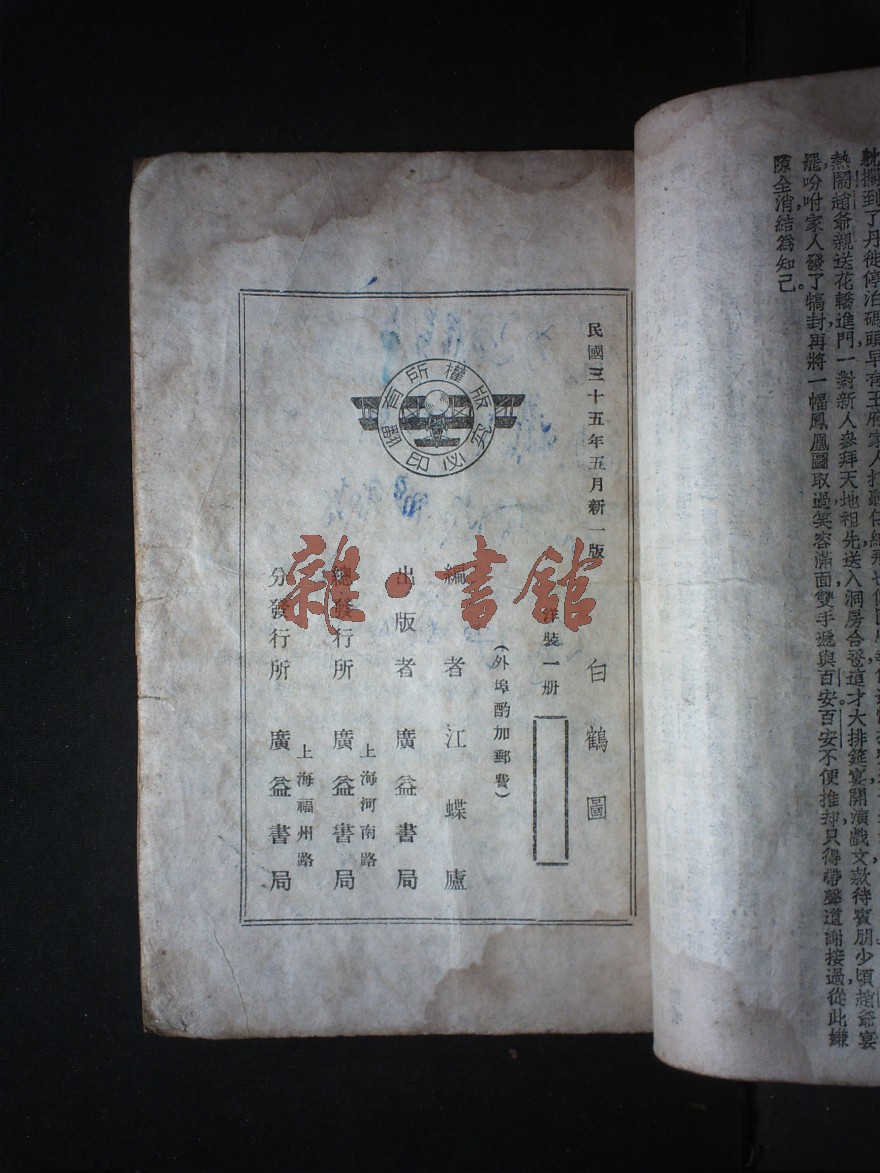 躭擱到了丹徙停泊碼頭早有王府家人打
熱鬧,趙爺親送花轎進門,一對新人參拜天地祖先,送入洞房合巹。這才大排筵宴,開演戲文,款待賓朋。少頃,趙爺宴
罷,吩咐家人發了犒封,再將一幅鳳凰圖取過,笑容滿面,雙手遞與百安,百安不便推却,只得帶
道謝接過,從此嫌
隙全消,結爲知己。
民國三十五年五月新一版
白鶴圖
洋裝一册
(外埠酌加郵費)
編者 江蝶廬
出版者 廣益書局
上海河南路
總發行所 廣益書局
上海福州路
分發行所 廣益書局
版權所有
翻印必究
雜·書館